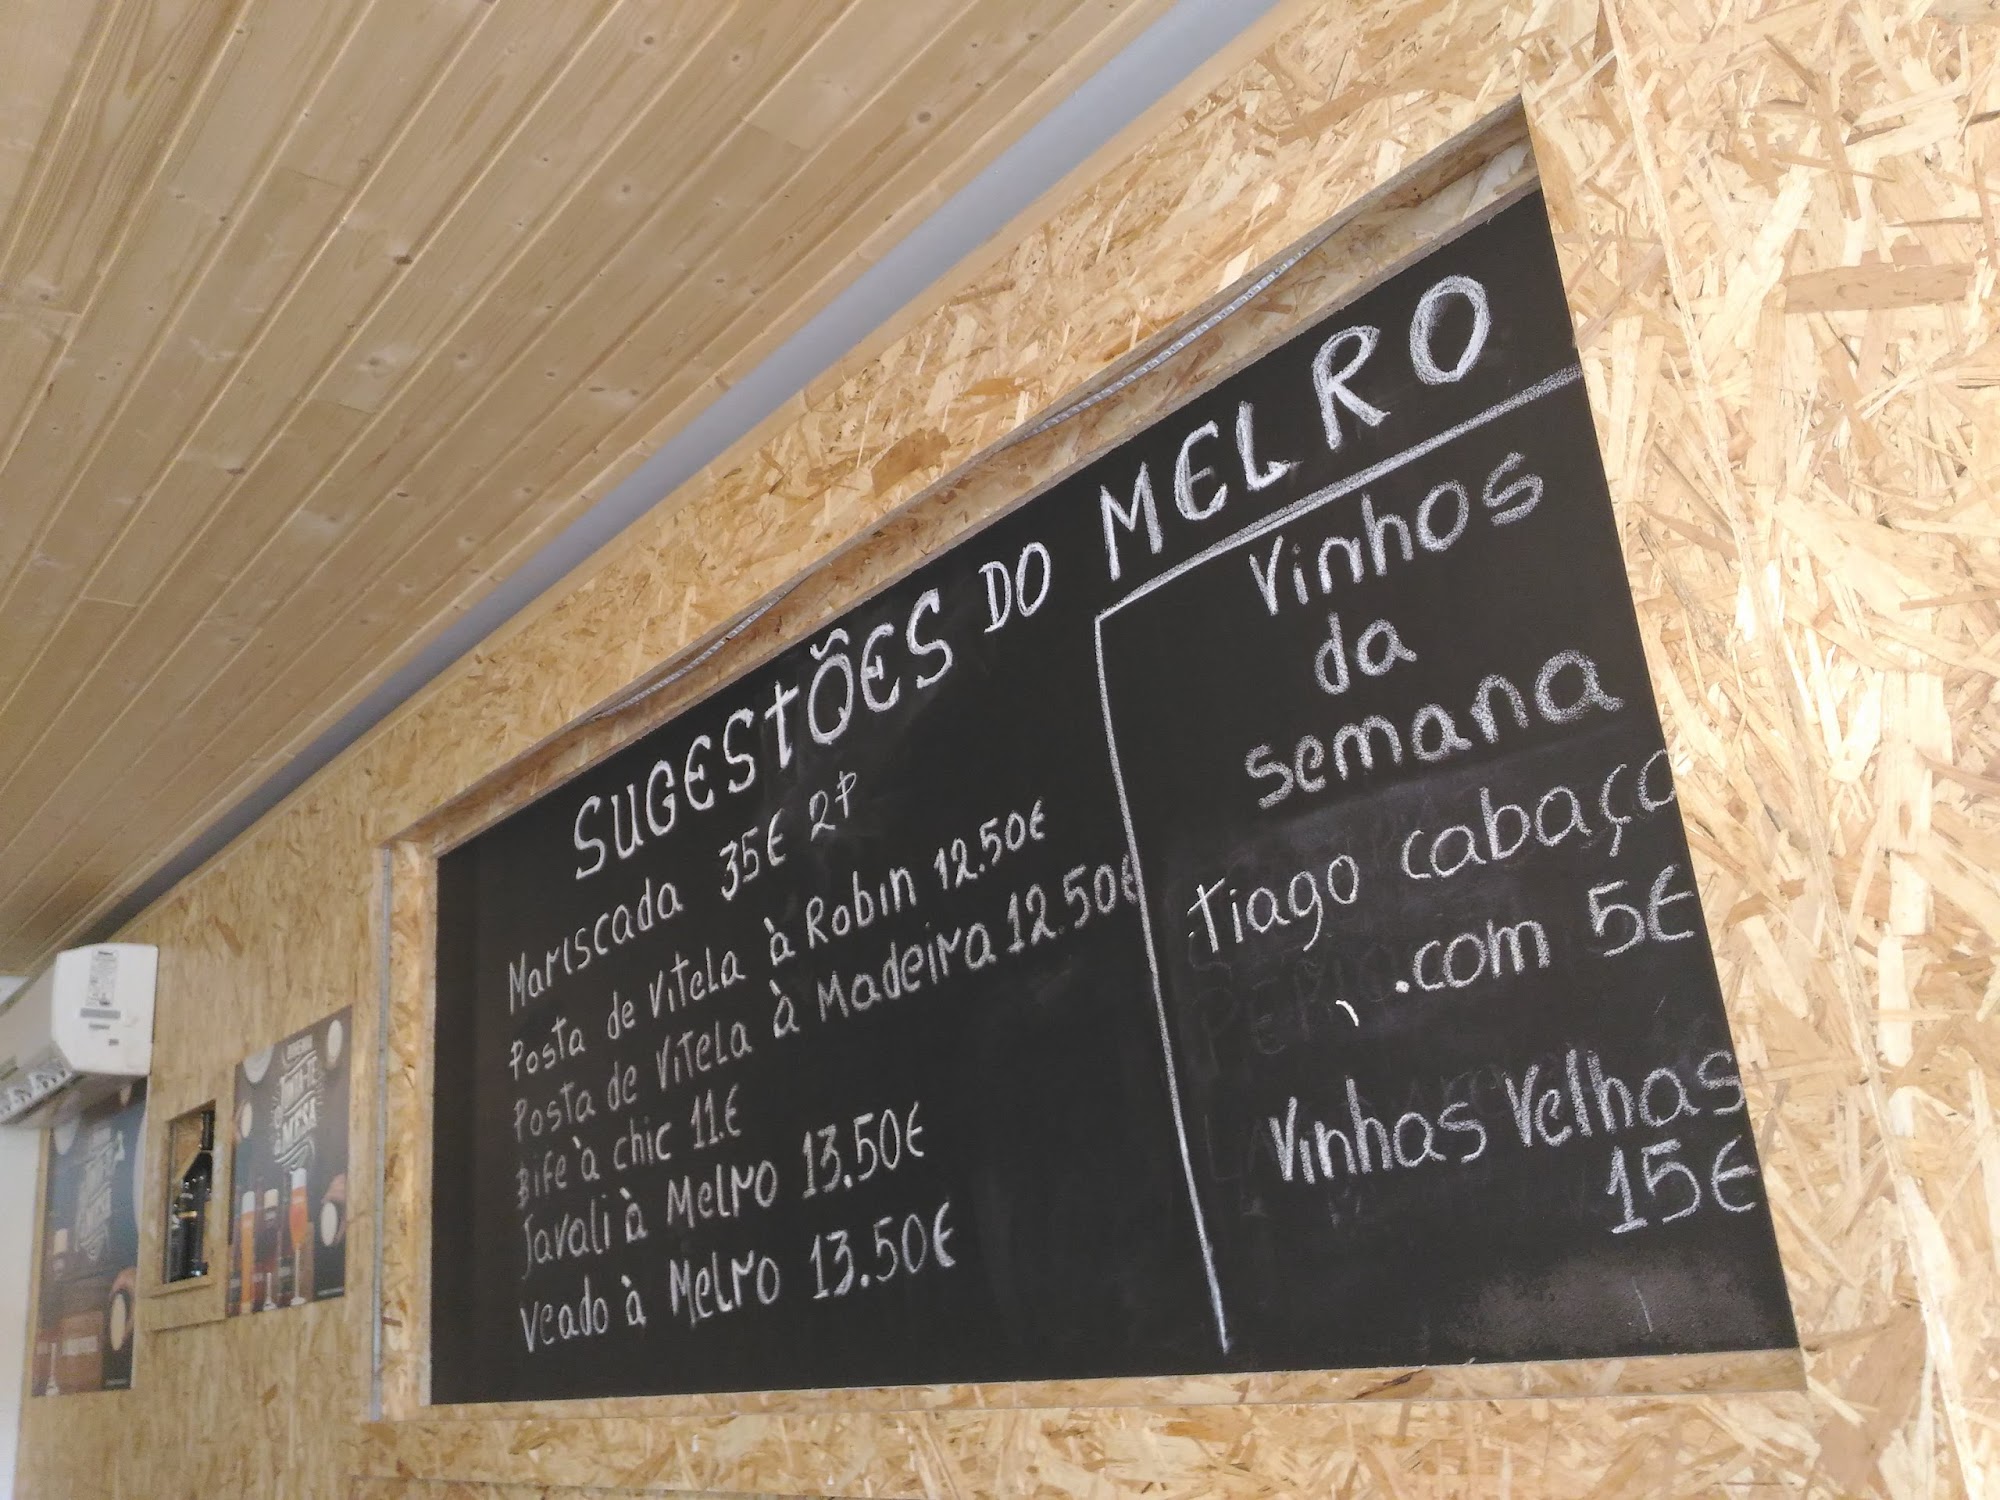 SUGESTÕES DO MELRO
Mariscada 35€ 2P
Posta de vitela à Robin 12.50€
Posta de vitela à Madeira 12.50€
Bife à chic 11€
Javali à Melro 13.50€
Veado à Melro 13.50€
Vinhos
da
semana
tiago cabaço
.com 5€
Vinhas Velhas
15€
JUNTA-TE
À MESA